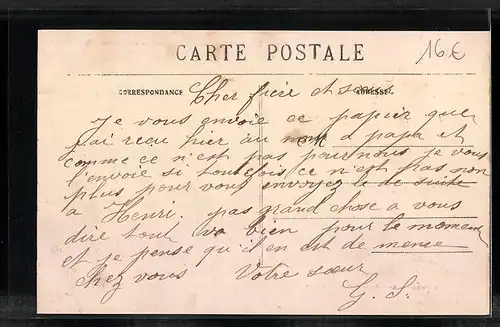 CARTE POSTALE
16€
CORRESPONDANCE
ADRESSE
Cher frère et sœur
Je vous envoie ce papier que
j'ai reçu hier au nom a papa et
comme ce n'est pas pour nous je vous
l'envoie si toutefois ce n'est pas non
plus pour vous envoyez le de suite
a Henri. pas grand chose a vous
dire tout va bien pour le moment
et je pense qu'il en est de meme
chez vous Votre sœur
G. S.